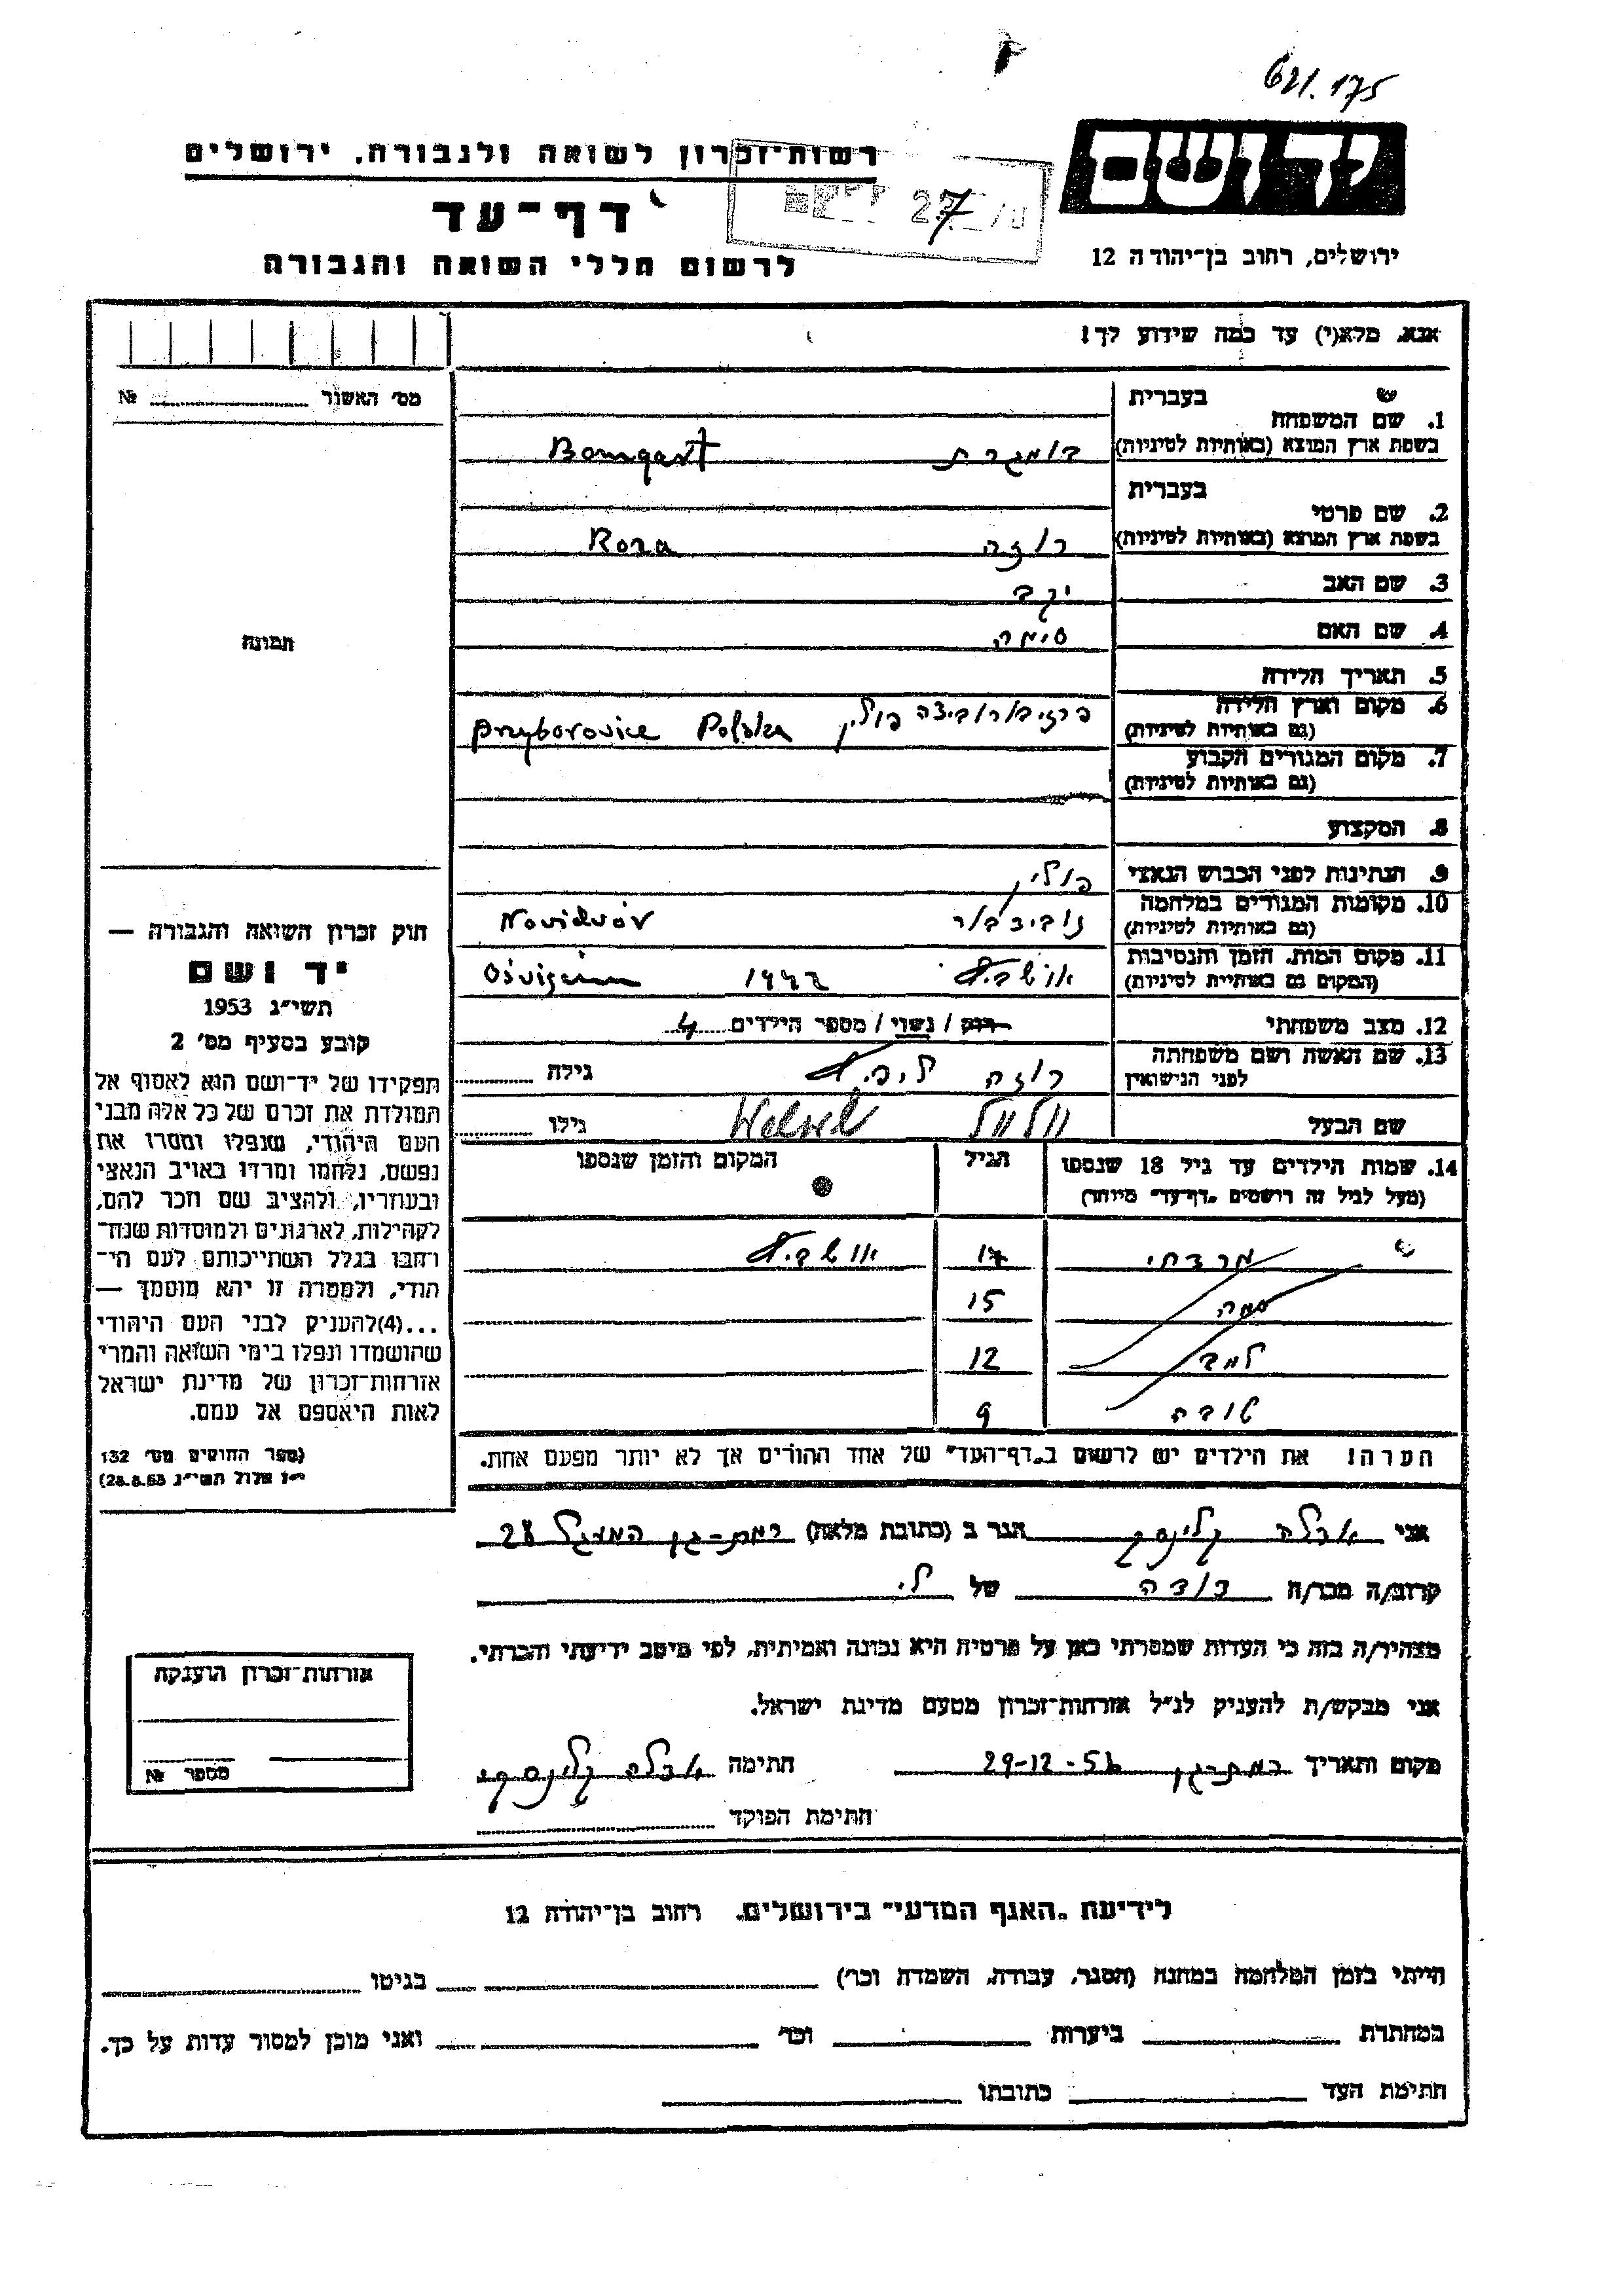 621.175
יד ושם
רשות-זכרון לשואה ולגבורה, ירושלים
דף-עד
לרשום חללי השואה והגבורה
ירושלים, רחוב בן-יהודה 12
אנא, מלא(י) עד כמה שידוע לך!
מס' האשור № 
1. שם המשפחה
בעברית
בשפת ארץ המוצא (באותיות לטיניות) בומגרט Bomgart
2. שם פרטי
בעברית
בשפת ארץ המוצא (באותיות לטיניות) רוזה Roza
3. שם האב יקב
4. שם האם סימה
5. תאריך הלידה
6. מקום וארץ הלידה
(גם באותיות לטיניות) פולין Polska
7. מקום המגורים הקבוע
(גם באותיות לטיניות)
8. המקצוע
9. הנתינות לפני הכבוש הנאצי פולין
10. מקומות המגורים במלחמה
(גם באותיות לטיניות) Novidvór
11. מקום המות, הזמן והנסיבות
(המקום גם באותיות לטיניות) 1942
12. מצב משפחתי רוק / נשוי / מספר הילדים 4
13. שם האשה ושם משפחתה
לפני הנישואין רוזה גילה
שם הבעל Welwel גילו
תמונה
חוק זכרון השואה והגבורה —
יד ושם
תשי"ג 1953
קובע בסעיף מס' 2
תפקידו של יד-ושם הוא לאסוף אל
המולדת את זכרם של כל אלה מבני
העם היהודי, שנפלו ומסרו את
נפשם, נלחמו ומרדו באויב הנאצי
ובעוזריו, ולהציב שם וזכר להם,
לקהילות, לארגונים ולמוסדות שנח-
רבו בגלל השתייכותם לעם הי-
הודי, ולמטרה זו יהא מוסמך —
...(4)להעניק לבני העם היהודי
שהושמדו ונפלו בימי השואה והמרי
אזרחות-זכרון של מדינת ישראל
לאות היאספם אל עמם.
(ספר החוקים מס' 132
י"ז אלול תשי"ג 28.8.53)
14. שמות הילדים עד גיל 18 שנספו
(מעל לגיל זה רושמים "דף-עד" מיוחד) הגיל המקום והזמן שנספו
מרדכי 17
15
12
טובה 9
הערה! את הילדים יש לרשום ב"דף-העד" של אחד ההורים אך לא יותר מפעם אחת.
אני הגר ב (כתובת מלאה) רמת-גן המעגל 28
קרוב/ה מכר/ה דודה של לי
מצהיר/ה בזה כי העדות שמסרתי כאן על פרטיה היא נכונה ואמיתית, לפי מיטב ידיעתי והכרתי.
אני מבקש/ת להעניק לנ"ל אזרחות-זכרון מטעם מדינת ישראל.
מקום ותאריך רמת-גן 29-12-56 חתימה
חתימת הפוקד
אזרחות-זכרון הוענקה
מספר №
לידיעת "האגף המדעי" בירושלים. רחוב בן-יהודה 12
הייתי בזמן המלחמה במחנה (הסגר, עבודה, השמדה וכו') בגיטו
במחתרת ביערות וכו' ואני מוכן למסור עדות על כך.
חתימת העד כתובתו